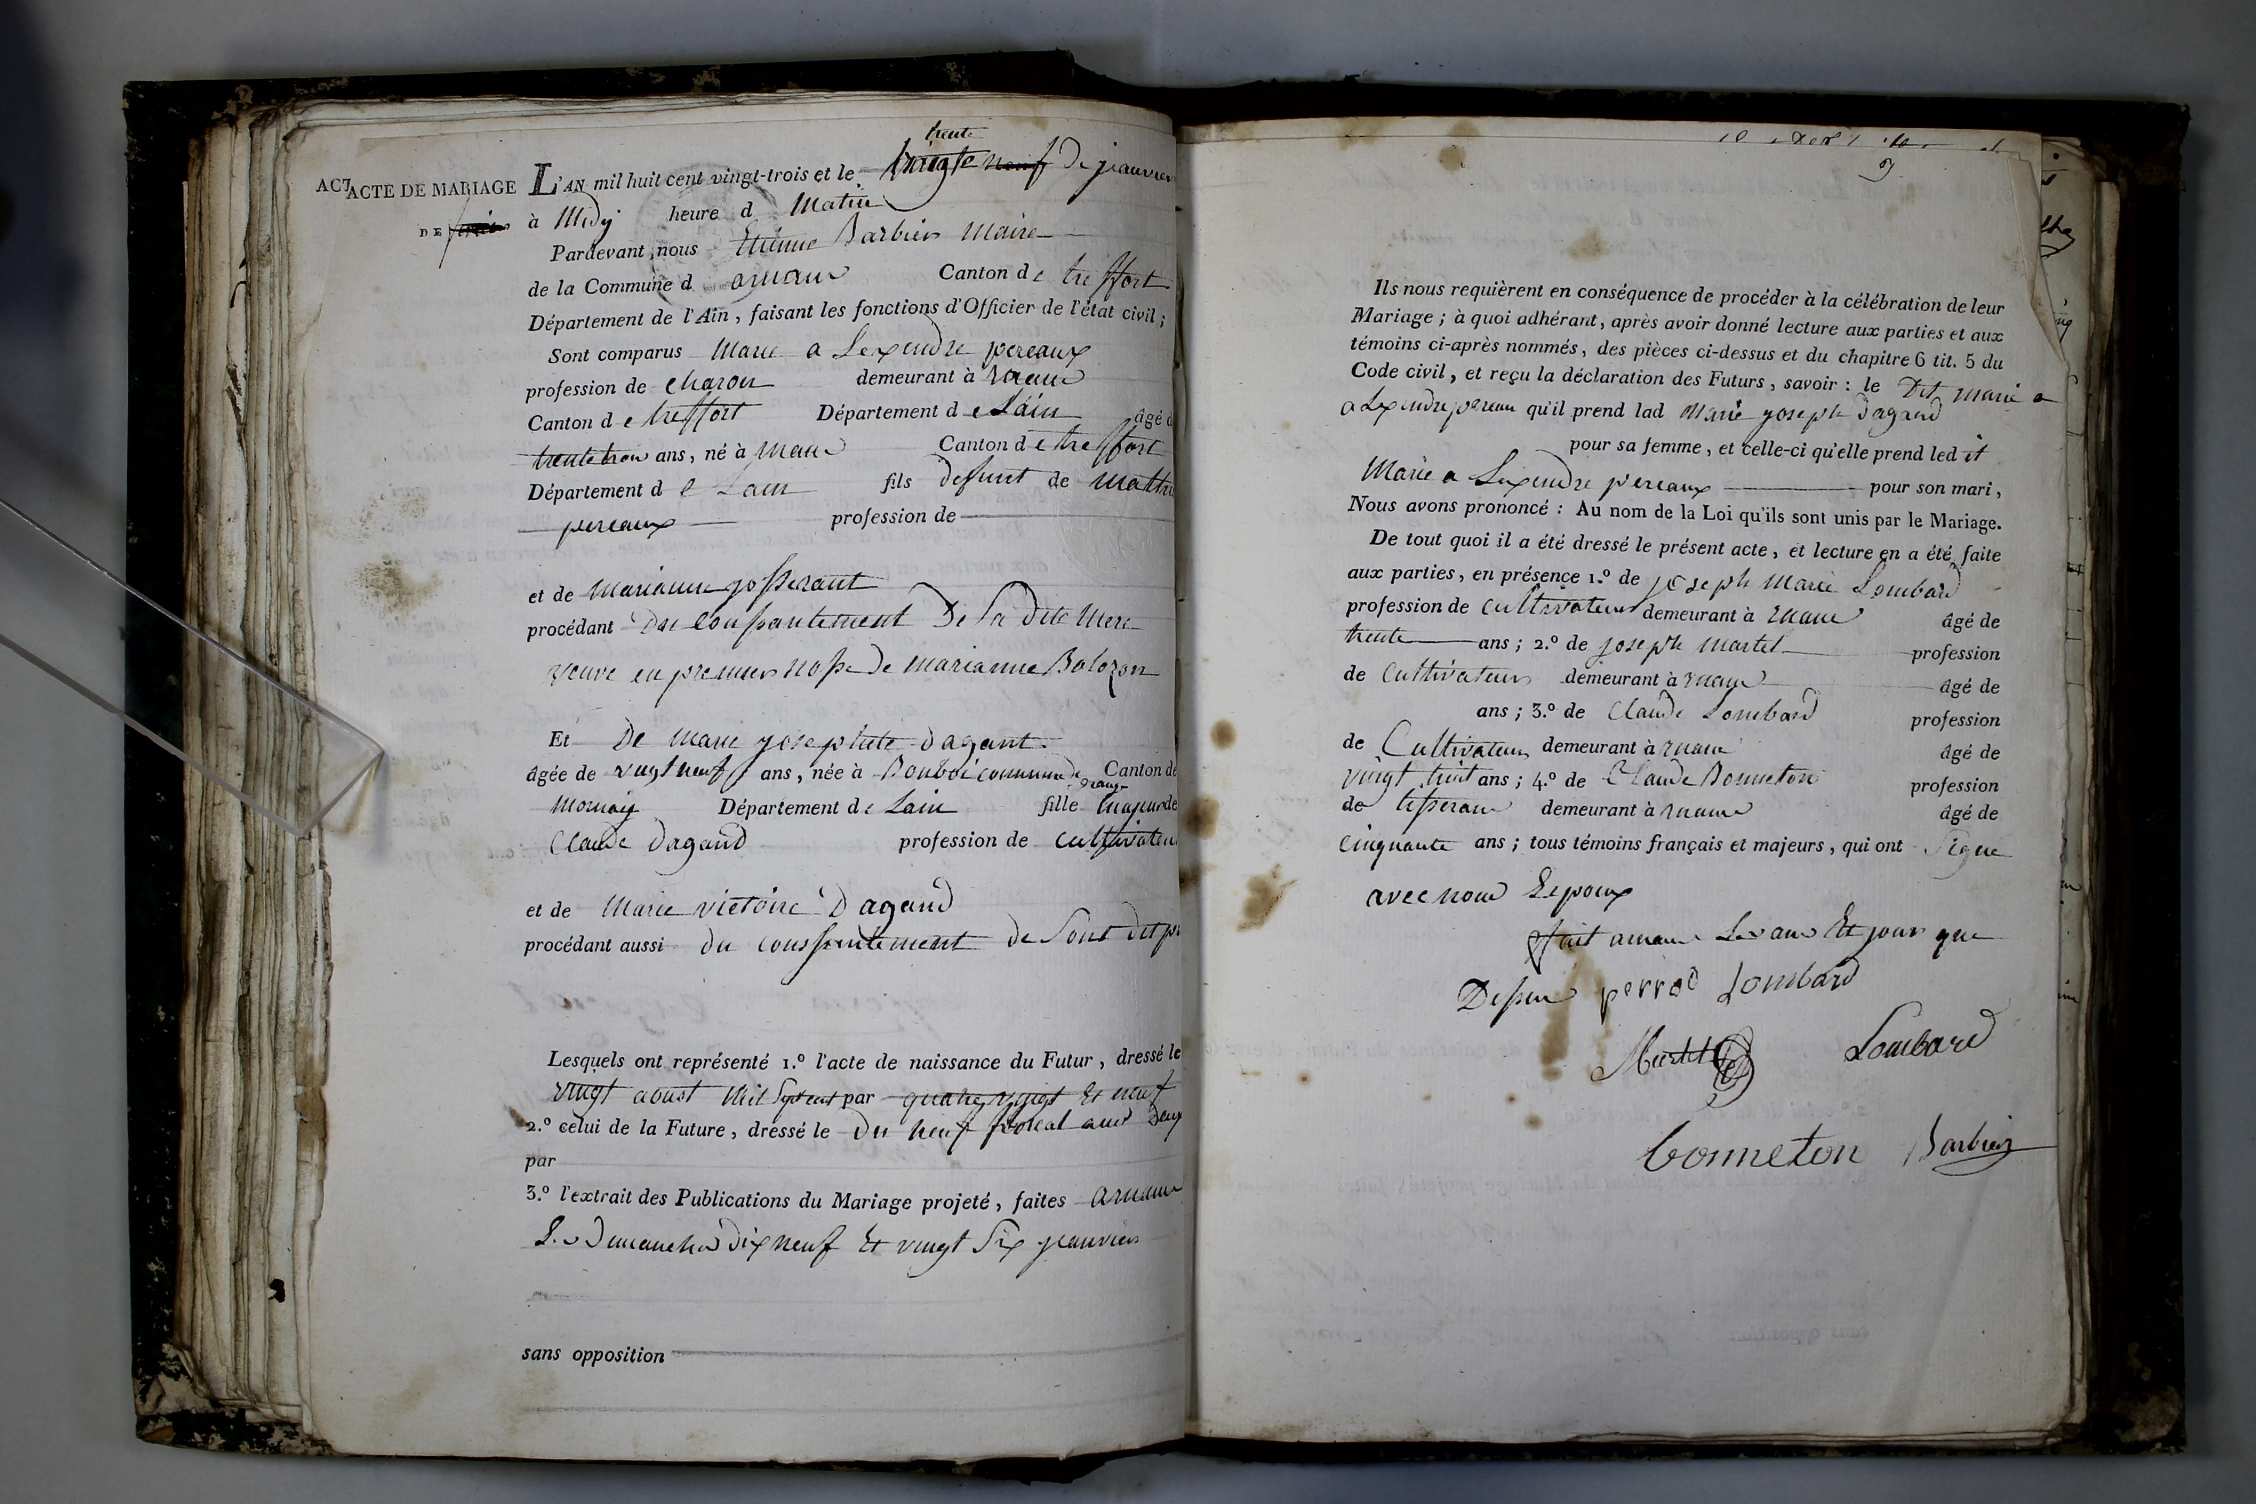 trente
ACTE DE MARIAGE L'AN mil huit cent vingt-trois et le vingte neuf De jeanvier
DE à Midy heure d Matin
Pardevant nous Etienne Barbier Maire
de la Commune d amaux Canton de treffort
Département de l'Ain, faisant les fonctions d'Officier de l'état civil;
Sont comparus Marie a Lexendre pereaux
profession de charon demeurant à
Canton de treffort Département de Láin âgé d
trente trois ans, né à Canton de treffort
Département de Lain fils defunt de
pereaux profession de
et de marianne josserant
procédant Du Conssantement De sa dite Mere
veuve en premier nosse de marianne Bolozon
Et De Marie josephete dagant
âgée de vingt neuf ans, née à Bouboi commune de Canton de
Mornay Département de Lain fille majeur de
Claude Dagand profession de cultivateur
et de Marie victoire Dagand
procédant aussi du conssentement de
Lesquels ont représenté 1.º l'acte de naissance du Futur, dressé le
vingt aoust Mil Sept cent par quatre vingt Et neuf
2.º celui de la Future, dressé le Du neuf floreal ans Deux
par
3.º l'extrait des Publications du Mariage projeté, faites
Les Dimanches dix neuf Et vingt Six jeanvier
sans opposition
9
Ils nous requièrent en conséquence de procéder à la célébration de leur
Mariage; à quoi adhérant, après avoir donné lecture aux parties et aux
témoins ci-après nommés, des pièces ci-dessus et du chapitre 6 tit. 5 du
Code civil, et reçu la déclaration des Futurs, savoir: le Dit marie a
a Lexendre pereau qu'il prend lad Marie joseph dagand
pour sa femme, et celle-ci qu'elle prend led it
Marie a Lexendre pereaux pour son mari,
Nous avons prononcé: Au nom de la Loi qu'ils sont unis par le Mariage.
De tout quoi il a été dressé le présent acte, et lecture en a été faite
aux parties, en présence 1.º de joseph Marie Lombard
profession de cultivateur demeurant à âgé de
trente ans; 2.º de joseph martel profession
de Cultivateur demeurant à âgé de
ans; 3.º de Claude Lombard profession
de Cultivateur demeurant à âgé de
vingt huit ans; 4.º de Claude Bonneton profession
de tisserans demeurant à âgé de
cinquante ans; tous témoins français et majeurs, qui ont Signe
avec nous Lepoux
ffait Les ans Et jour que
Dessus perrod Lombard
Martel Lombard
bonneton Barbier